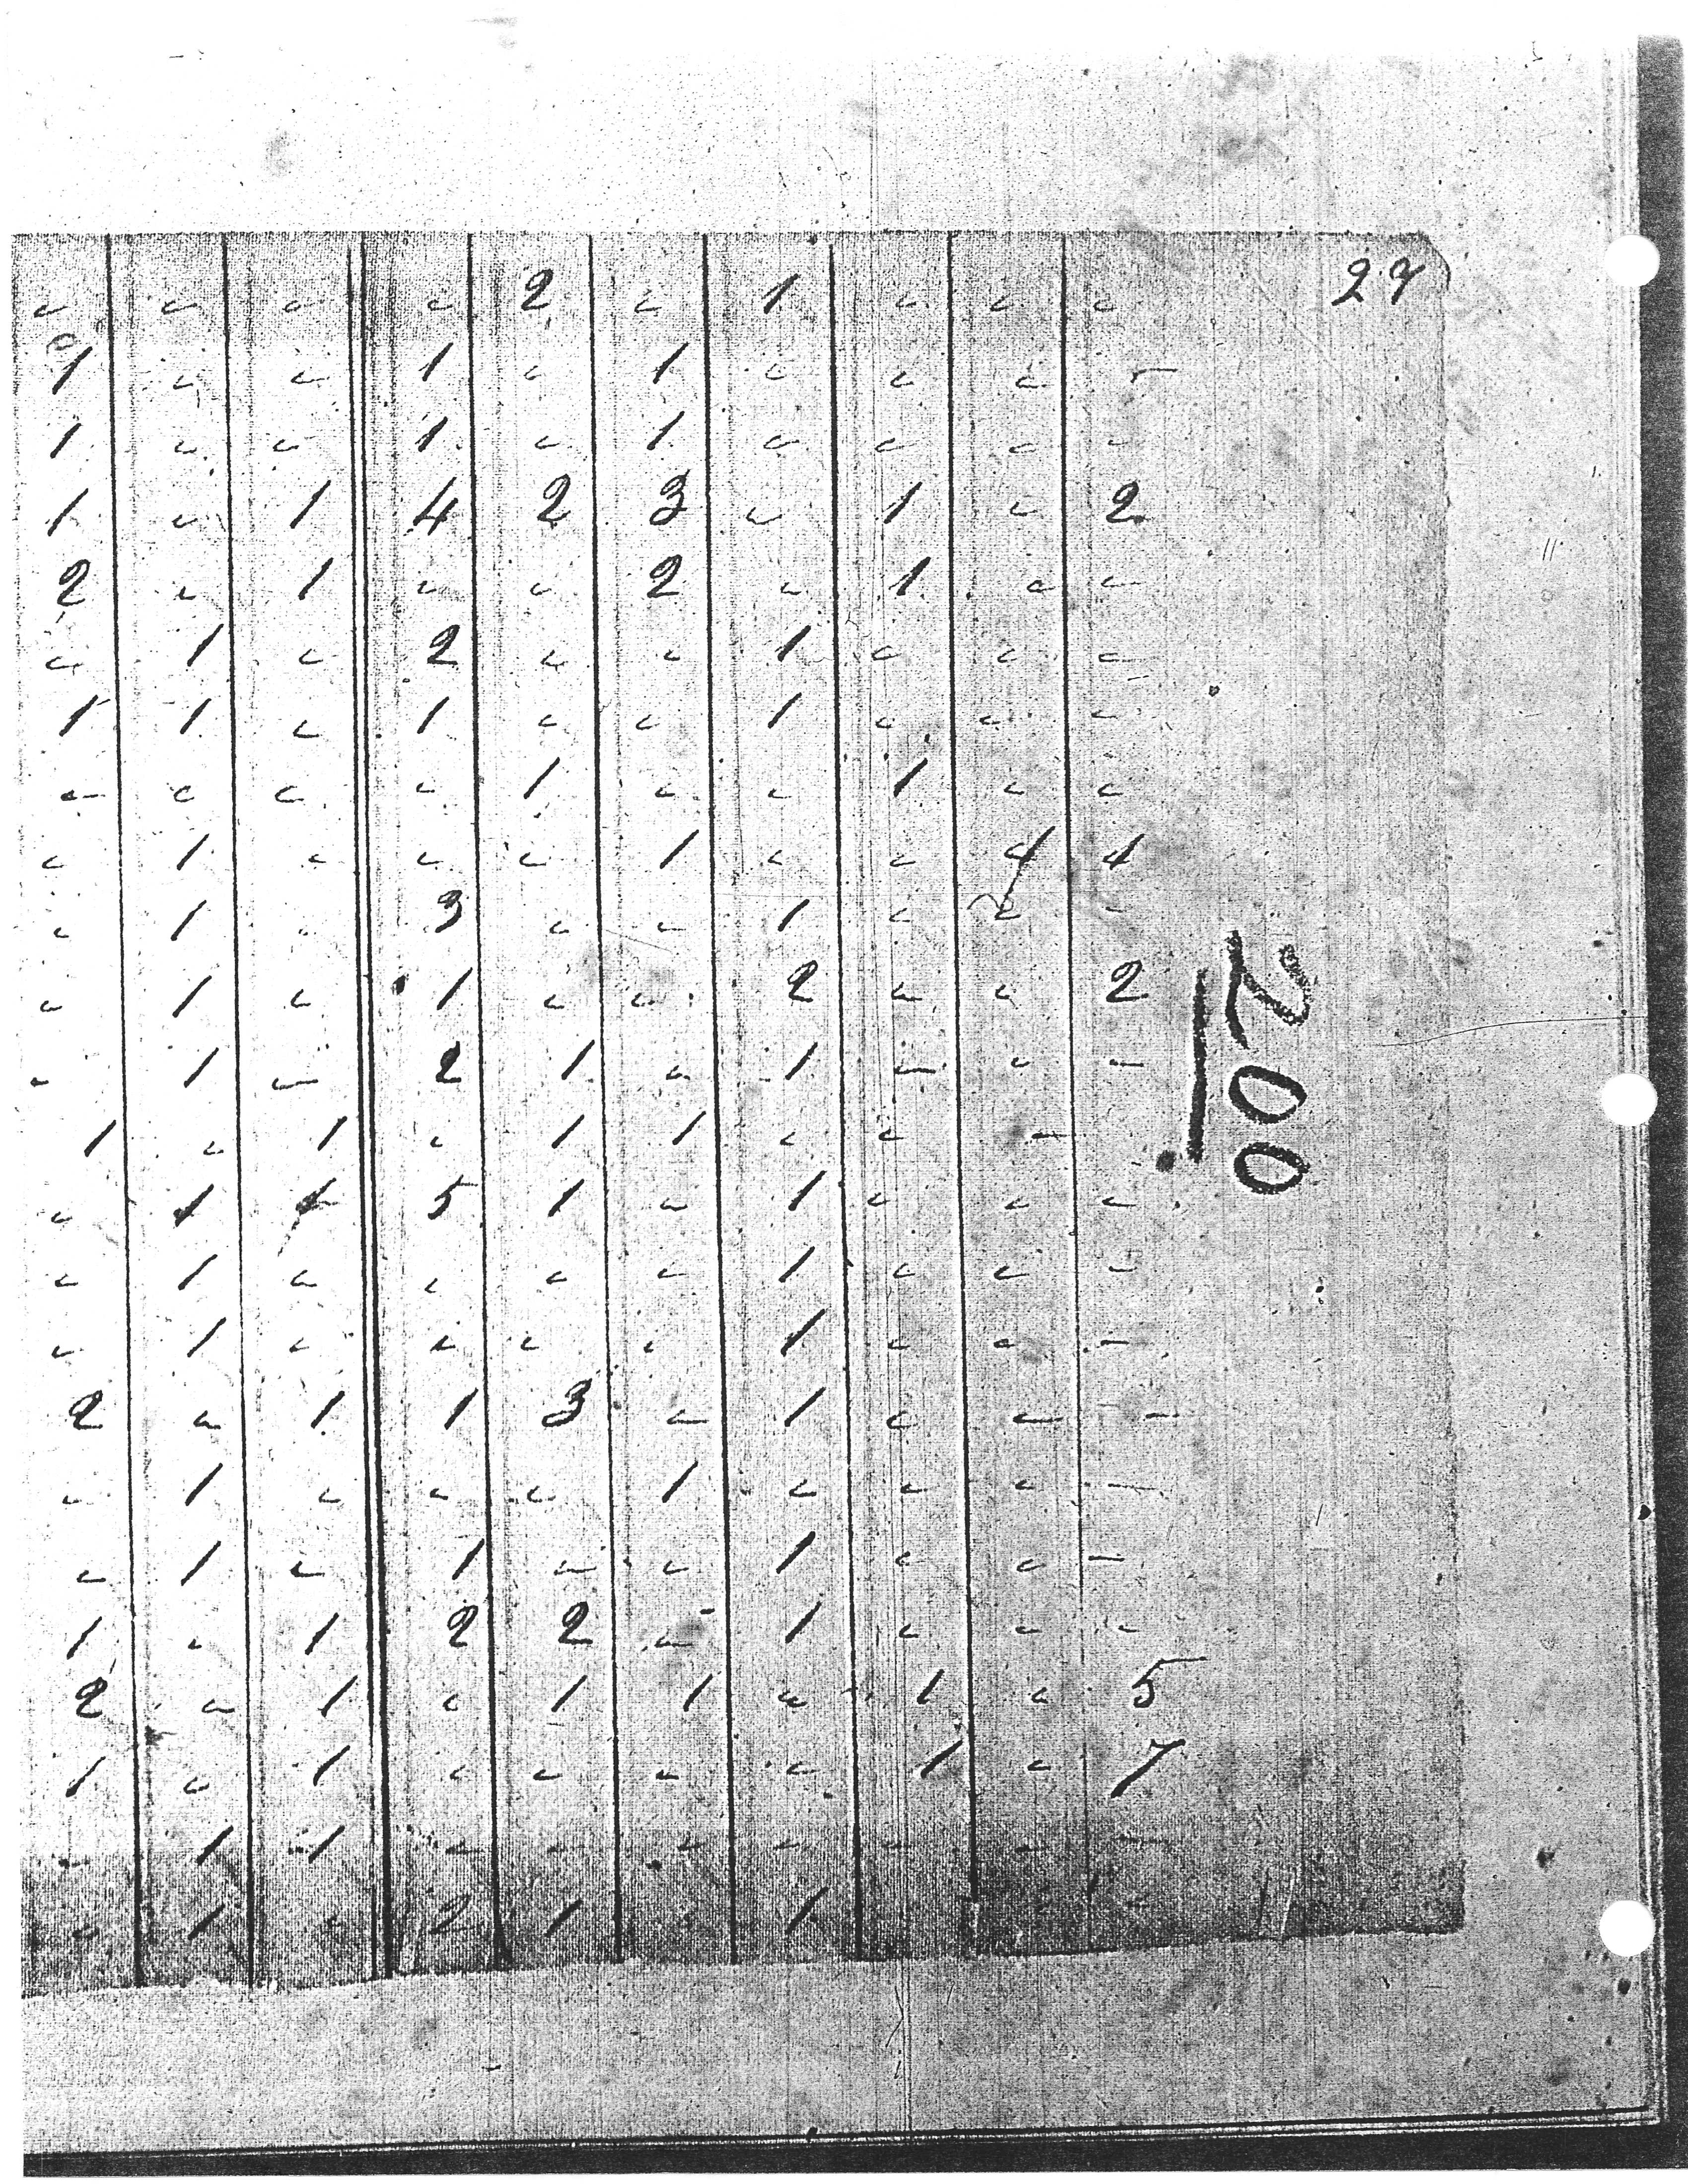 c c c c 2 c 1 c c c 27
1 c c 1 c 1 c c c -
1 c c 1 c 1 c c c c
1 c 1 4 2 3 c 1 c 2
2 c 1 c c 2 c 1 c c
c 1 c 2 c c 1 c c c
1 1 c 1 c c 1 c c c
c c c c 1 c c 1 c c
c 1 c c c 1 c c
c 1 3 c c 1 c c -
c 1 c 1 c c 2 c c 2
c 1 c 2 1 c 1 c c -
1 c 1 c 1 1 c c -
c 1 1 5 1 c 1 c c c
c 1 c c c c 1 c c c
c 1 c c c c 1 c c -
2 c 1 1 3 c 1 c c -
c 1 c c c 1 c c c -
c 1 c 1 c c 1 c c -
1 c 1 2 2 c 1 c c c
2 c 1 c 1 1 c 1 c 5
1 c 1 c c c c 1 c 7
c 1 1 c c c c c c -
c 1 c 2 1 c 1
200